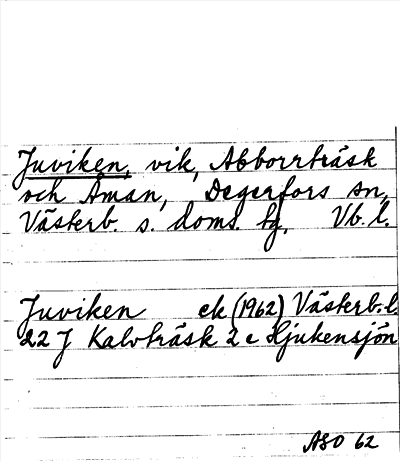 Juviken, vik, Abborrträsk
och Åman, Degerfors sn,
Västerb. s. doms. tg, Vb. l.
Juviken ek (1962) Västerb. l.
22 J Kalvträsk 2 c Hjukensjön
ASO 62